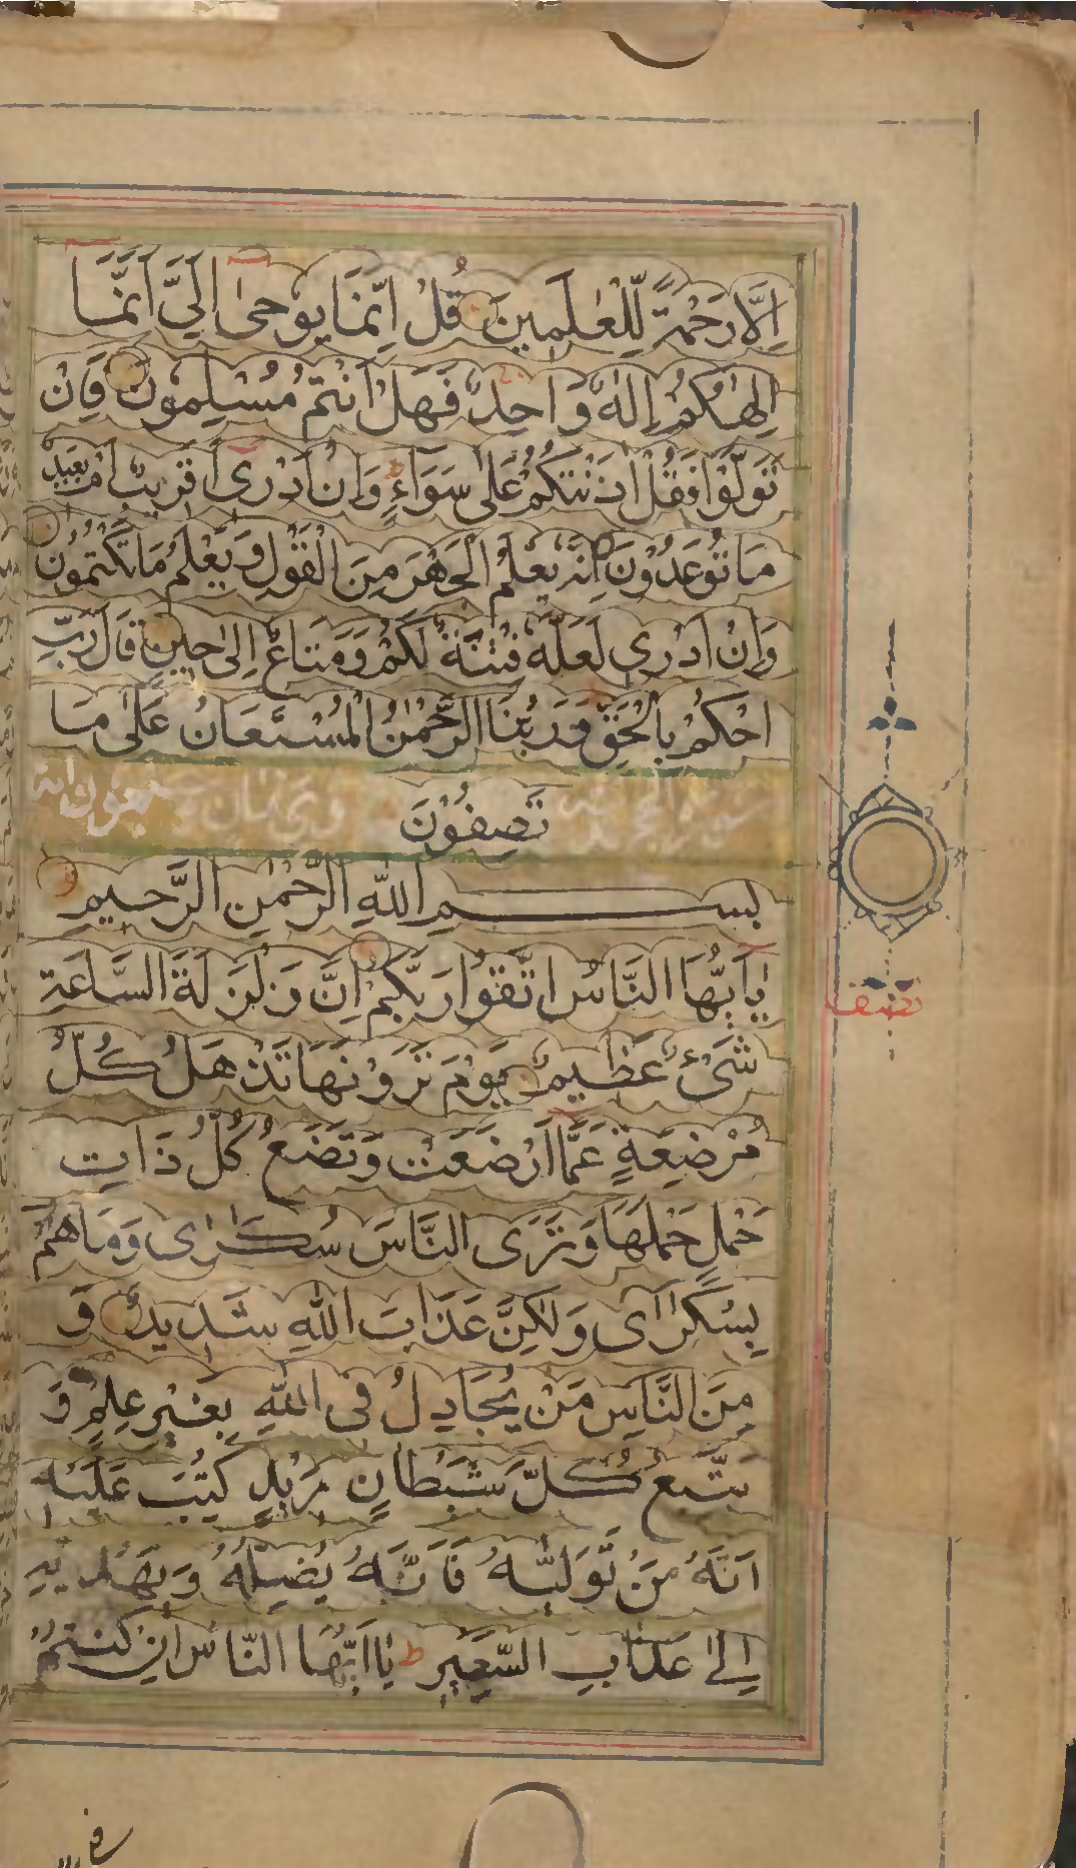 اِلَّا رَحْمَةً لِّلْعٰلَمِينَ قُلْ اِنَّمَا يُوحىٰ اِلَيَّ اَنَّمَا
اِلٰهُكُمْ اِلٰهٌ وَاحِدٌ فَهَلْ اَنْتُمْ مُسْلِمُونَ فَاِنْ
تَوَلَّوْا فَقُلْ اٰذَنْتُكُمْ عَلٰى سَوَاءٍ ط وَاِنْ اَدْرِى اَقَرِيبٌ اَمْ بَعِيدٌ
مَا تُوعَدُوْنَ اِنَّهُ يَعْلَمُ الْجَهْرَ مِنَ الْقَوْلِ وَيَعْلَمُ مَا تَكْتُمُوْنَ
وَاِنْ اَدْرِى لَعَلَّهُ فِتْنَةٌ لَكُمْ وَمَتَاعٌ اِلىٰ حِينٍ قَالَ رَبِّ
احْكُمْ بِالْحَقِّ وَرَبُّنَا الرَّحْمٰنُ الْمُسْتَعَانُ عَلٰى مَا
تَصِفُوْنَ
بِسْمِ اللّٰهِ الرَّحْمٰنِ الرَّحِيمِ
يٰاَيُّهَا النَّاسُ اتَّقُوْا رَبَّكُمْ اِنَّ زَلْزَلَةَ السَّاعَةِ
شَىْءٌ عَظِيمٌ يَوْمَ تَرَوْنَهَا تَذْهَلُ كُلُّ
مُرْضِعَةٍ عَمَّا اَرْضَعَتْ وَتَضَعُ كُلُّ ذَاتِ
حَمْلٍ حَمْلَهَا وَتَرَى النَّاسَ سُكَارٰى وَمَا هُمْ
بِسُكَارٰى وَلٰكِنَّ عَذَابَ اللّٰهِ شَدِيدٌ وَ
مِنَ النَّاسِ مَنْ يُجَادِلُ فِى اللّٰهِ بِغَيْرِ عِلْمٍ وَ
يَتَّبِعُ كُلَّ شَيْطَانٍ مَرِيدٍ كُتِبَ عَلَيْهِ
اَنَّهُ مَنْ تَوَلَّاهُ فَاَنَّهُ يُضِلُّهُ وَيَهْدِيهِ
اِلىٰ عَذَابِ السَّعِيرِ ط يٰااَيُّهَا النَّاسُ اِنْ كُنْتُمْ
نصف